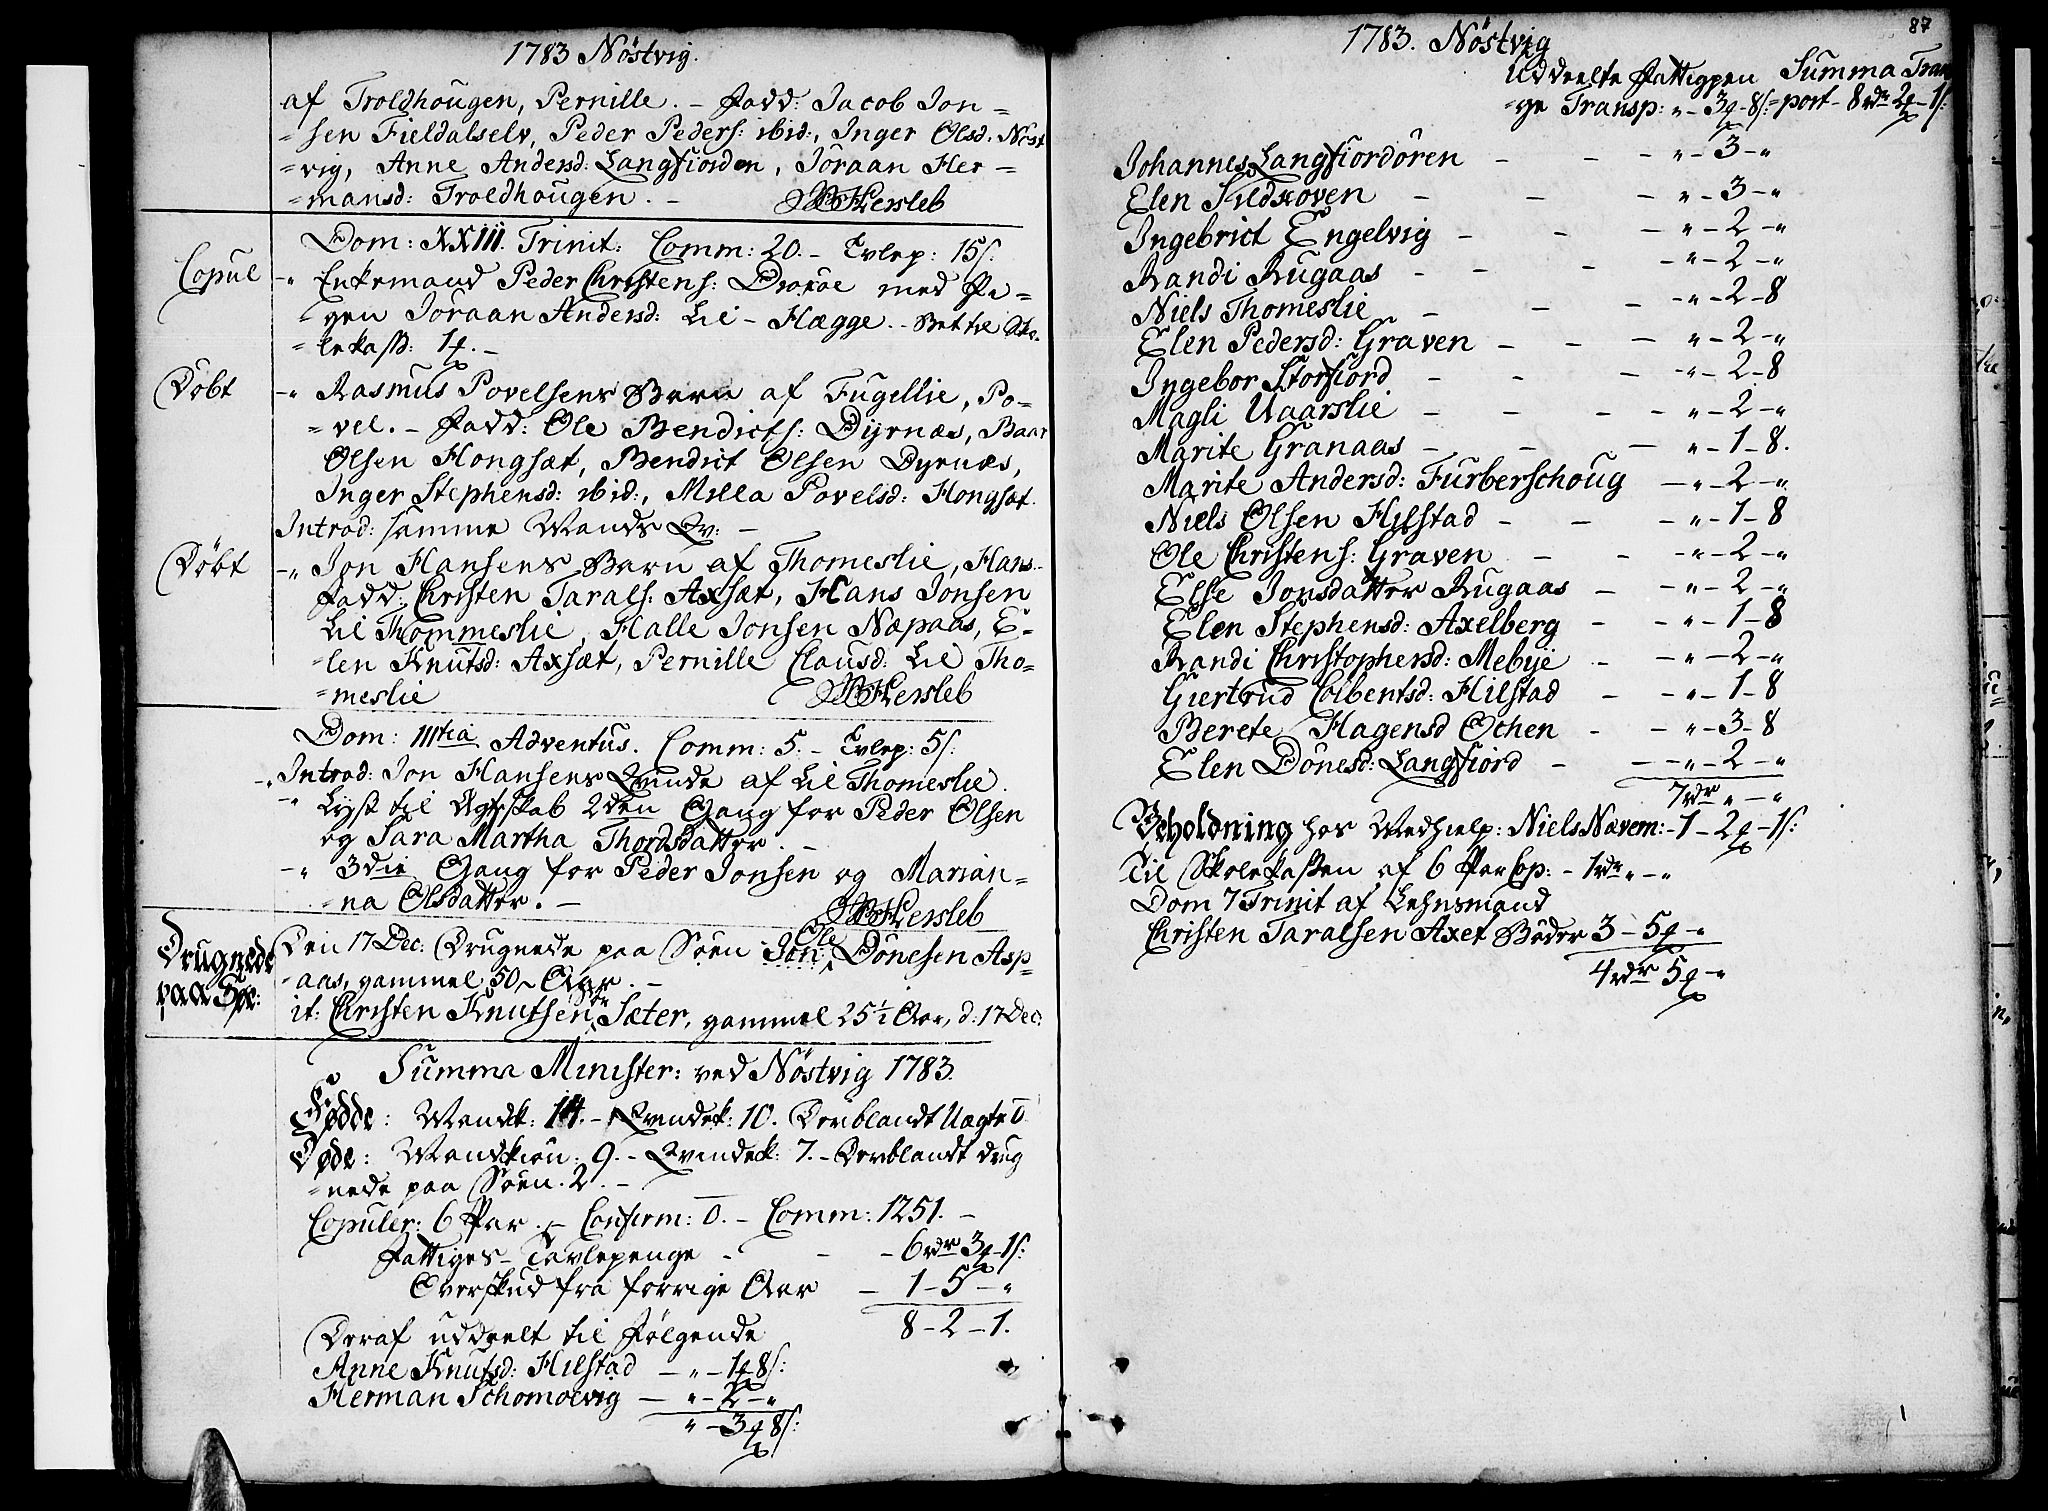 1783 Nöstvig.
af Troldhougen, Pernille. – Fadd: Jacob Jon=
=sen Fieldalselv, Peder Peders: ibid:, Inger Olsd: Nöst
=vig, Anne Andersd: Langfiorden, Joraan Her=
=mansd: Troldhougen. – Hersleb
Dom: XXIII. Trinit: Comm: 20. – Tvlep: 15/:
Copul –„ Enkemand Peder Christens: med Pi=
=gen Joraan Andersd: Lil-Hægge. – Bet til Sko=
=lekass: 1
Döbt –„ Rasmus Povelsens Barn af Fugellie, Po=
=vel. – Fadd: Ole Bendicts: Dyrnæs, Baar
Olsen Hongsæt, Bendict Olsen Dyrnæs,
Inger Stephensd: ibid:, Milla Povelsd: Hongsæt.
Introd: samme Mands Qv: –
Döbt –„ Jon Hansens Barn af Thomeslie, Hans.–
Fadd: Christen Tarals: Axsæt, Hans Jonsen
Lil Thommeslie, Halle Jonsen Næpaas, E=
=len Knutsd: Axsæt, Pernille Clausd: Lil Tho=
=meslie Hersleb
Dom: IIItia Adventus. Comm: 5. – Tvlep: 5/:
–„ Introd: Jon Hansens Qvinde af Lil Thomeslie.
–„ Lyst til Ægteskab 2den Gang for Peder Olsen
og Sara Martha Thordsdatter. –
–„ 3die Gang for Peder Jonsen og Marian=
=na Olsdatter. – Hersleb
Drugnede paa Söe: Den 17 Dec: Drugnede paa Söen Jon: Ole Dönesen Asp=
=aas, gammel 50 Aar. –
it: Christen Knutsen Sæter, gammel 25½ Aar, d: 17 Dec:
Summa Minister: ved Nöstvig 1783.
Födde: Mandk: 14. – Qvindek: 10. Deriblandt Uægte 0
Döde: Mandkiön: 9. – Qvindek: 7. – Deriblandt drug
=nede paa Söen. 2. –
Copuler: 6 Par. – Confirm: 0. – Comm: 1251. –
Fattiges Tavlepenge – – – 6 rdr 3 – 1/:
Overskud fra forrige Aar – 1 – 5 – „
Deraf uddeelt til Fölgende 8 – 2 – 1.
Anne Knutsd: Hilstad – „ – 1 8/:
Herman Schomoevig – „ – 2 – „
„ – 3 8/:
87
1783. Nöstvig
Uddeelte Fattigpen Summa Trans
=ge Transp: „ – 3 – 8/: =port – 8 rdr 2 – 1/:
Johannes Langfiordören – – – „ – 3 – „
Elen – – – „ – 3 – „
Ingebrict Engelvig – – – „ – 2 – „
Randi Rugaas – – – – „ – 2 – „
Niels Thomeslie – – – – „ – 2 – 8
Elen Pedersd: Graven – – – „ – 2 – „
Ingebor Storfiord – – – – „ – 2 – 8
Magli Uaarslie – – – – „ – 2 – „
Marite Granaas – – – „ – 1 – 8.
Marite Andersd: Furberschoug – „ – 2 – „
Niels Olsen Hilstad – – – „ – 1 – 8
Ole Christens: Graven – – – „ – 2 – „
Else Jonsdatter Rugaas – – „ – 2 – „
Elen Stephensd: Axelberg – – „ – 1 – 8
Randi Christophersd: Mebye – – „ – 2 – „
Giertrud Colbentsd: Hilstad – – „ – 1 – 8
Berete Hagensd Ochen – – „ – 3 – 8
Elen Dönesd: Langfiord – – – „ – 2 – „
7 rdr „ – „
Beholdning hos Medhielp: Niels Nævem: – 1 – 2 – 1/:
Til Skolekassen af 6 Par Cop: – 1 rdr „ – „
Dom 7 Trinit af Lehnsmand
Christen Taralsen Axet Böder 3 – 5 – „
4 rdr 5 – „